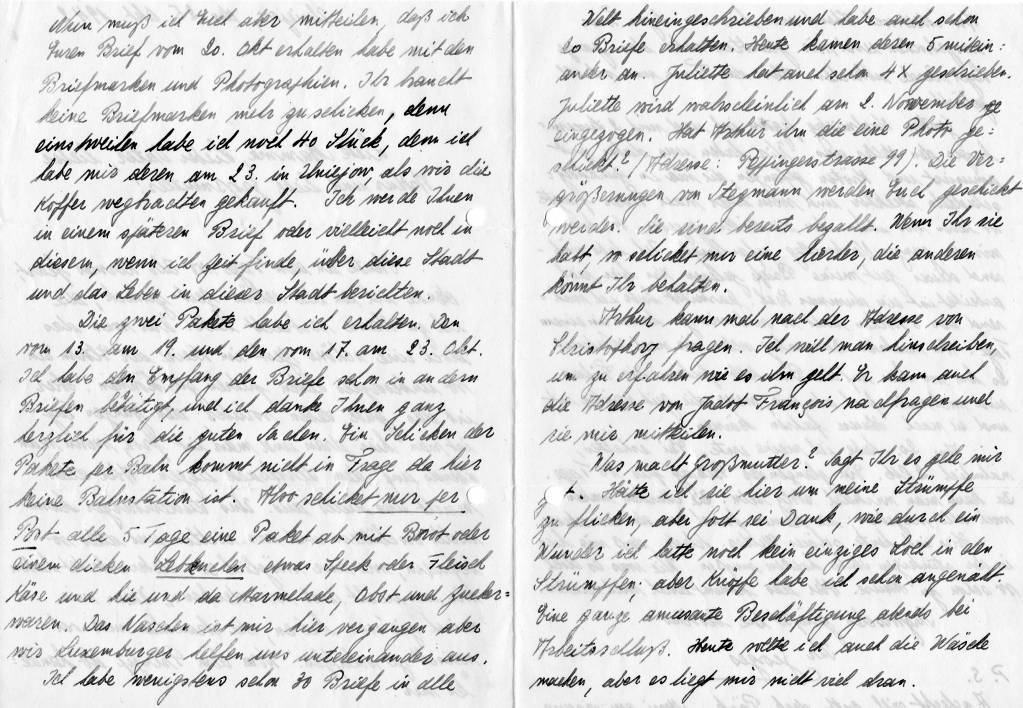 Nun muß ich Euch aber mitteilen, daß ich
Euren Brief vom 20. Okt erhalten habe mit den
Briefmarken und Photographien. Ihr braucht
keine Briefmarken mehr zu schicken, denn
einstweilen habe ich noch 40 Stück, denn ich
habe mir deren am 23. in Uniejow, als wir die
Koffer wegbrachten gekauft. Ich werde Ihnen
in einem späteren Brief oder vielleicht noch in
diesem, wenn ich Zeit finde, über diese Stadt
und das Leben in dieser Stadt berichten.
Die zwei Pakete habe ich erhalten. Den
vom 13. am 19. und den vom 17. am 23. Okt.
Ich habe den Empfang der Briefe schon in andern
Briefen betätigt, und ich danke Ihnen ganz
herzlich für die guten Sachen. Ein Schicken der
Pakete per Bahn kommt nicht in Frage da hier
keine Bahnstation ist. Also schicket nur per
Post alle 5 Tage eine Paket ab mit Brot oder
einem dicken Lebkuchen etwas Speck oder Fleisch
Käse und hie und da Marmelade, Obst und Zucker=
waren. Das Naschen ist mir hier vergangen aber
wir Luxemburger helfen uns untereinander aus.
Ich habe wenigstens schon 30 Briefe in alle
Welt hineingeschrieben und habe auch schon
20 Briefe erhalten. Heute kamen deren 5 mitein=
ander an. Juliette hat auch schon 4x geschrieben.
Juliette wird wahrscheinlich am 2. November
eingezogen. Hat Arthur ihm die eine Photo ge=
schickt? (Adresse: Peffingerstrasse 99). Die Ver=
größerungen von Stegmann werden Euch geschickt
werden. Sie sind bereits bezahlt. Wenn Ihr sie
habt, so schicket mir eine hierher, die anderen
könnt Ihr behalten.
Arthur kann mal nach der Adresse von
Christophory fragen. Ich will man hinschreiben,
um zu erfahren wie es ihm geht. Er kann auch
die Adresse von Jadot François nachfragen und
sie mir mitteilen.
Was macht Großmutter? Sagt Ihr es gehe mir
gut. Hätte ich sie hier um meine Strümpfe
zu flicken, aber Gott sei Dank, wie durch ein
Wunder ich hatte noch kein einziges Loch in den
Strümpfen; aber Knöpfe habe ich schon angenäht.
Eine ganze amusante Beschäftigung abends bei
Arbeitsschluß. Heute sollte ich auch die Wäsche
machen, aber es liegt mir nicht viel dran.